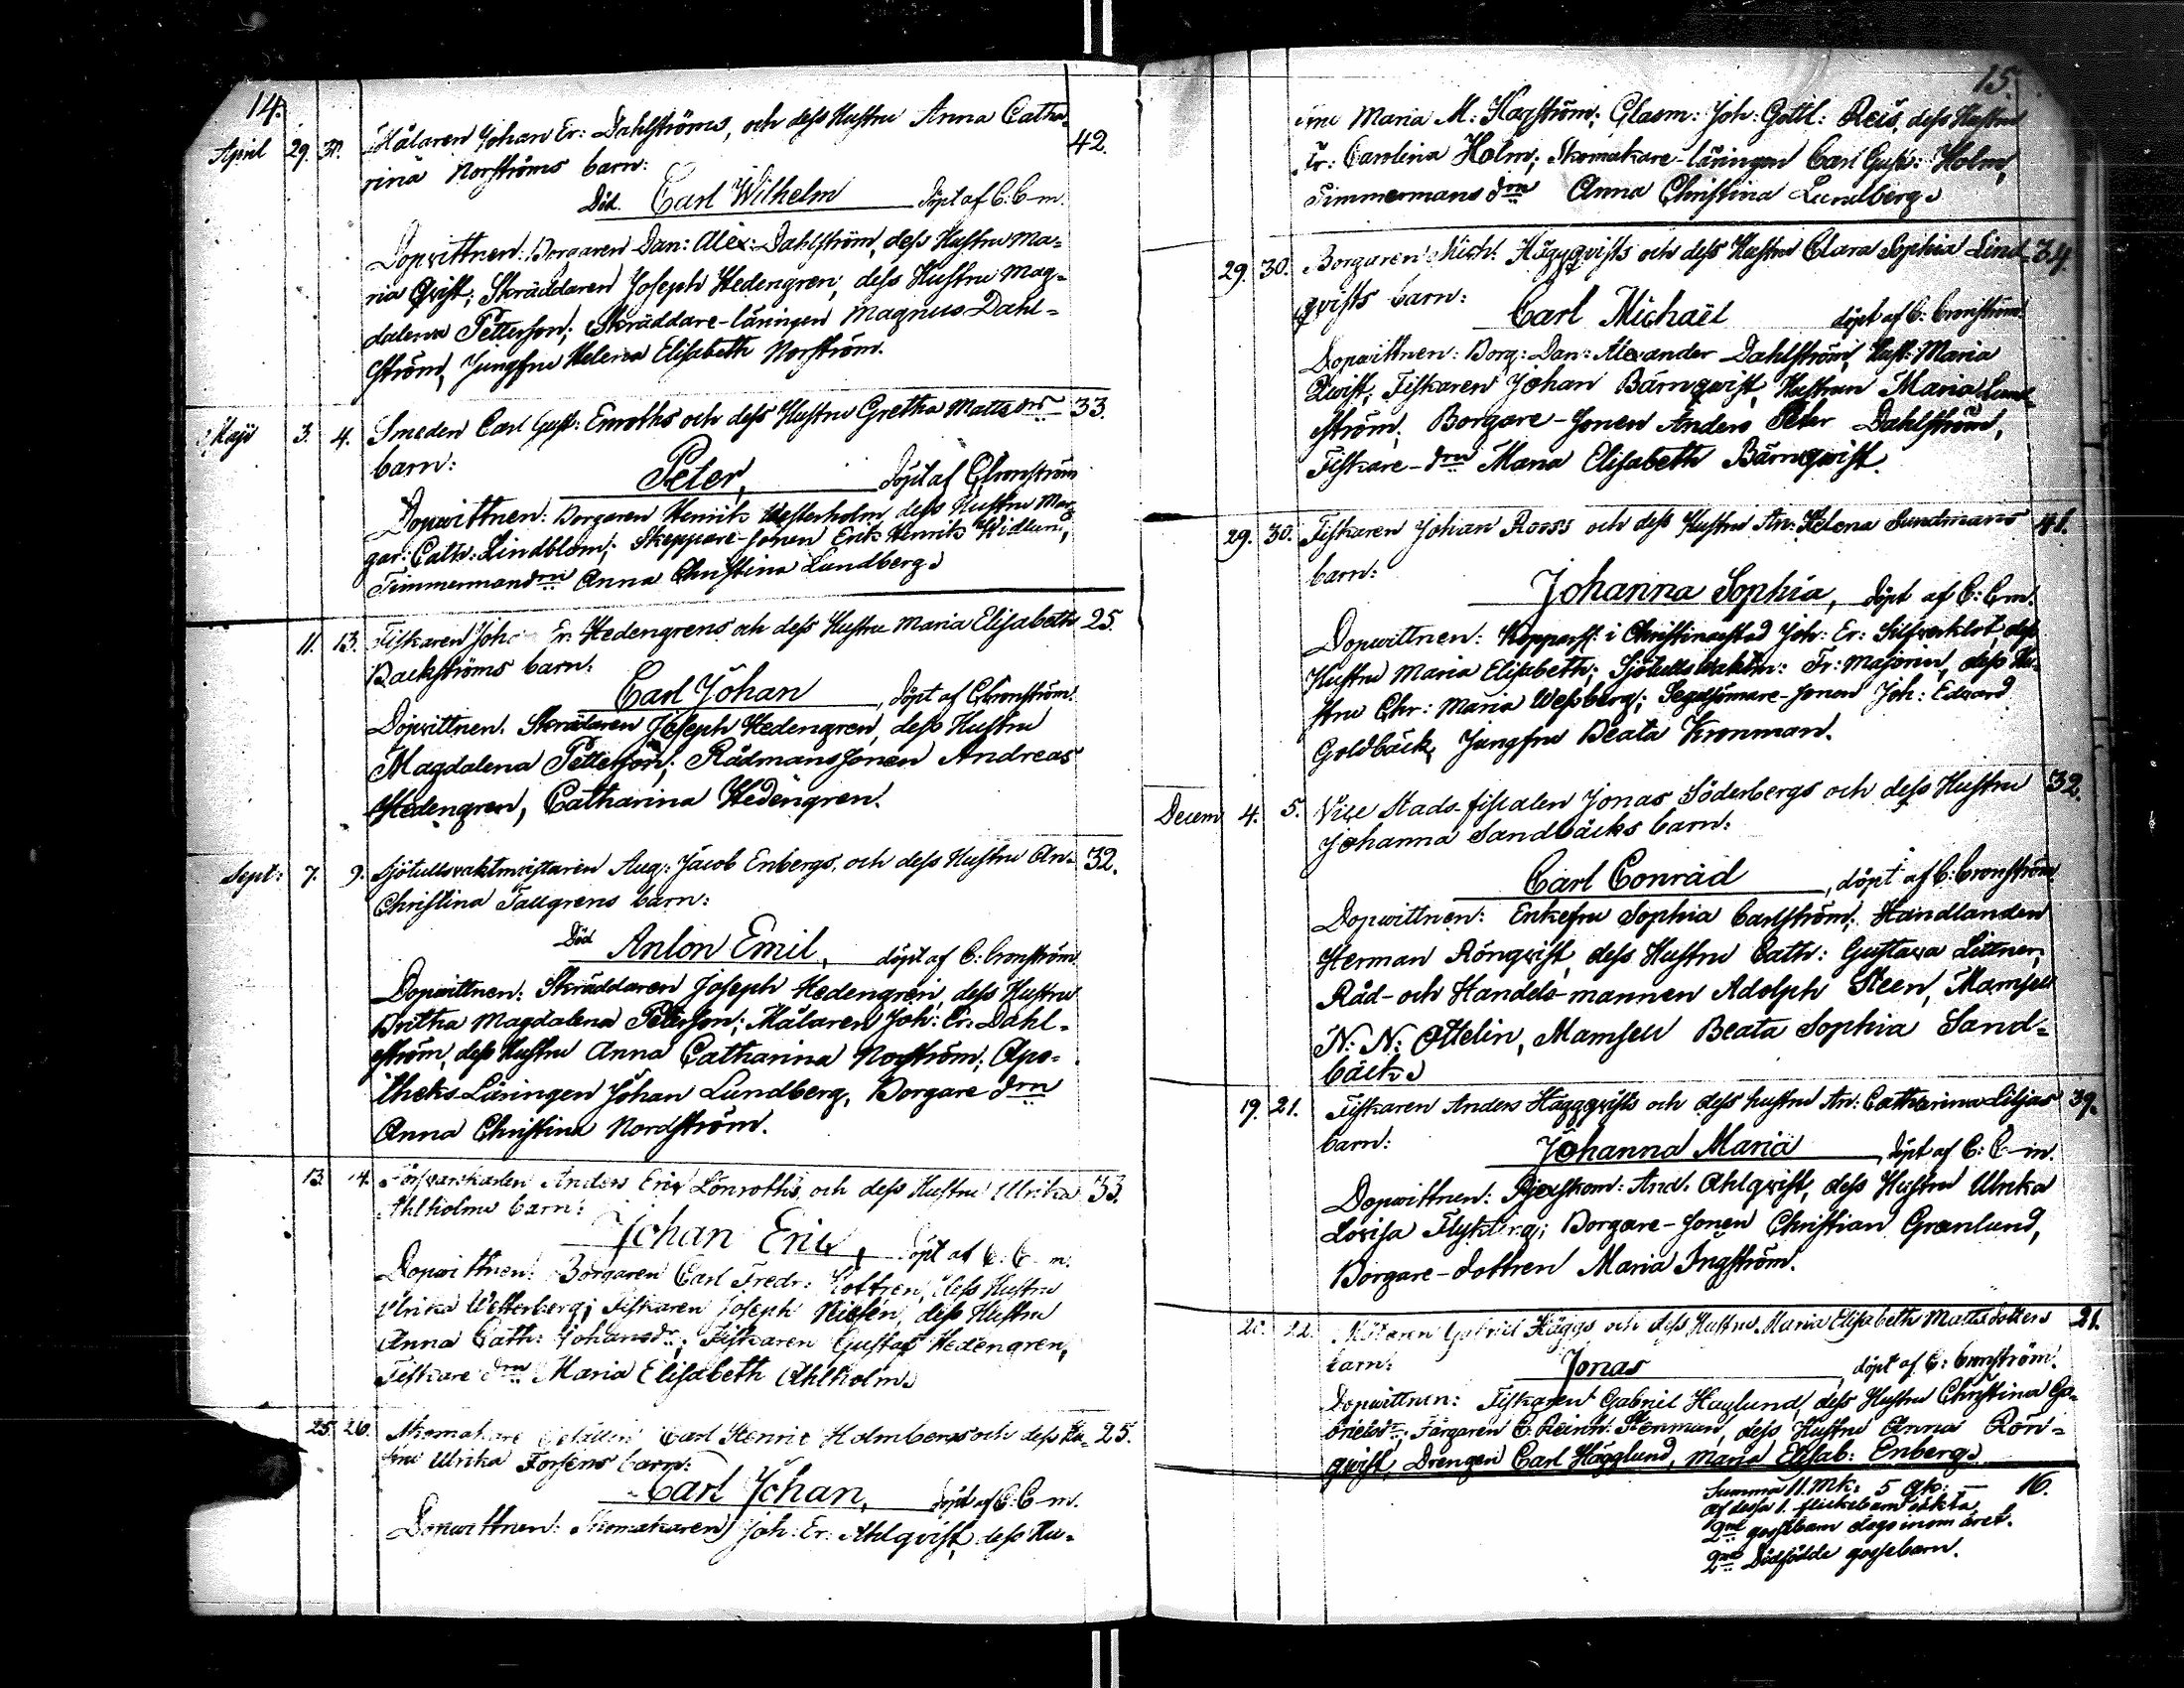 14.
April 29. 30. Målaren Johan Er: Dahlströms, och dess Hustru Anna Catha= 42.
rina Norströms barn:
Död. Carl Wilhelm döpt af C: C-m.
Dopvittnen: Borgaren Dan: Alex: Dahlström, dess Hustru Ma=
ria Qvist; Skräddaren Joseph Hedengren, dess Hustru Mag=
dalena Petterson; Skräddare-läringen Magnus Dahl=
ström, Jungfru Helena Elisabeth Norström.
Maji 3. 4. Smeden Carl Gust: Enroths och dess Hustru Gretha Mattsdrs 33.
barn:
Peter, döpt af C: Cronström
Dopvittnen: Borgaren Henrik Westerholm, dess Hustru Mar=
gar: Cath: Lindblom; Skeppare-sonen Erik Henrik Widlund,
Timmermansdrn Anna Christina Lundberg.
11. 13. Fiskaren Joh Er: Hedengrens och dess Hustru Maria Elisabeth 25.
Backströms barn:
Carl Johan, döpt af C: Cronström.
Dopvittnen: Skrädaren Joseph Hedengren, dess Hustru
Magdalena Petterson; Rådmanssonen Andreas
Hedengren, Catharina Hedengren.
Sept: 7. 9. Sjötullsvaktmästaren Aug: Jacob Enbergs, och dess Hustru An= 32.
Christina Tallgrens barn:
Död Anton Emil, döpt af C: Cronström
Dopvittnen: Skräddaren Joseph Hedengren, dess Hustru
Britha Magdalena Peterson; Målaren Joh: Er: Dahl=
ström, dess Hustru Anna Catharina Norström; Apo=
theks-Läringen Johan Lundberg, Borgare drn
Anna Christina Nordström.
13. 14. Försvarskarlen Anders Eric Lönroths, och dess Hustru Ulrika 33.
Ahlholms barn:
Johan Eric, döpt af C: C-m.
Dopvittnen: Borgaren Carl Fredr: dess Hustru
Ulrika Wetterberg; Fiskaren Joseph Nissén, dess Hustru
Anna Cath: Johansdr; Fiskaren Gustaf Hedengren,
Fiskare drn Maria Elisabeth Ahlholm.
25. 26. Skomakare Carl Henric Holmbergs och dess Hu= 25.
stru Ulrika Forsens barn:
Carl Johan, döpt af C: C-m.
Dopvittnen: Skomakaren Joh: Er: Ahlqvist, dess Hu=
15.
Maria M: Hagström; Glasm: Joh: Gottl: Reis, dess Hustru
Fr: Carolina Holm; Skomakare-läringen Carl Gust: Holm,
Timmermans drn Anna Christina Lundberg.
29. 30. Borgaren Mich: Häggqvists och dess Hustru Clara Sophia Lind= 34.
qvists barn:
Carl Michaël döpt af C: Cronström.
Dopvittnen: Borg: Dan: Alexander Dahlström, Hust: Maria
Qvist; Fiskaren Johan Bärnqvist, Hustrun Maria Lund=
ström; Borgare-sonen Anders Peter Dahlström,
Fiskare-drn Maria Elisabeth Bärnqvist.
29. 30. Fiskaren Johan Rooss och dess Hustru An: Helena Sundmans 41.
barn:
Johanna Sophia, döpt af C: C-m.
Dopvittnen: i Christinæstad Joh: Er: Silfverklot, dess
Hustru Maria Elisabeth; Sjötullsvaktm: Fr: Majorin, dess Hu=
stru Chr: Maria Wessberg; Segelsömare-sonen Joh: Edvard
Goldbäck, Jungfru Beata Kronman.
Decem 4. 5. Vice Stads-fiscalen Jonas Söderbergs och dess Hustru 32.
Johanna Sandbäcks barn:
Carl Conrad, döpt af C: Cronström.
Dopvittnen: Enkefru Sophia Carlström; Handlanden
Herman Rönqvist, dess Hustru Cath: Gustava Littner;
Råd- och Handels-mannen Adolph Steen, Mamsell
N: N: Ottelin, Mamsell Beata Sophia Sand=
bäck.
19. 21. Fiskaren Anders Häggqvists och dess hustru An: Catharina Liljas 39.
barn:
Johanna Maria, döpt af C: C-m.
Dopvittnen: And. Ahlqvist, dess Hustru Ulrika
Lovisa Flyktberg; Borgare-sonen Christian Grænlund,
Borgare-dottren Maria Ingström.
22. Gabriel Häggs och dess Hustru Maria Elisabeth Mattsdotters 21.
barn:
Jonas, döpt af C: Cronström.
Dopvittnen: Fiskaren Gabriel Haglund, dess Hustru Christina Ga=
brielsdr; Färgaren C. Reinh: Stenman, dess Hustru Anna Rön=
qvist, Drengen Carl Hägglund, Maria Elisab: Enberg.
Summa 11. Mk: 5 Qk: — 16.
Af dessa 1. flickebarn oäkta,
2ne gossebarn dogo inom året.
2ne Dödfödde gossebarn.